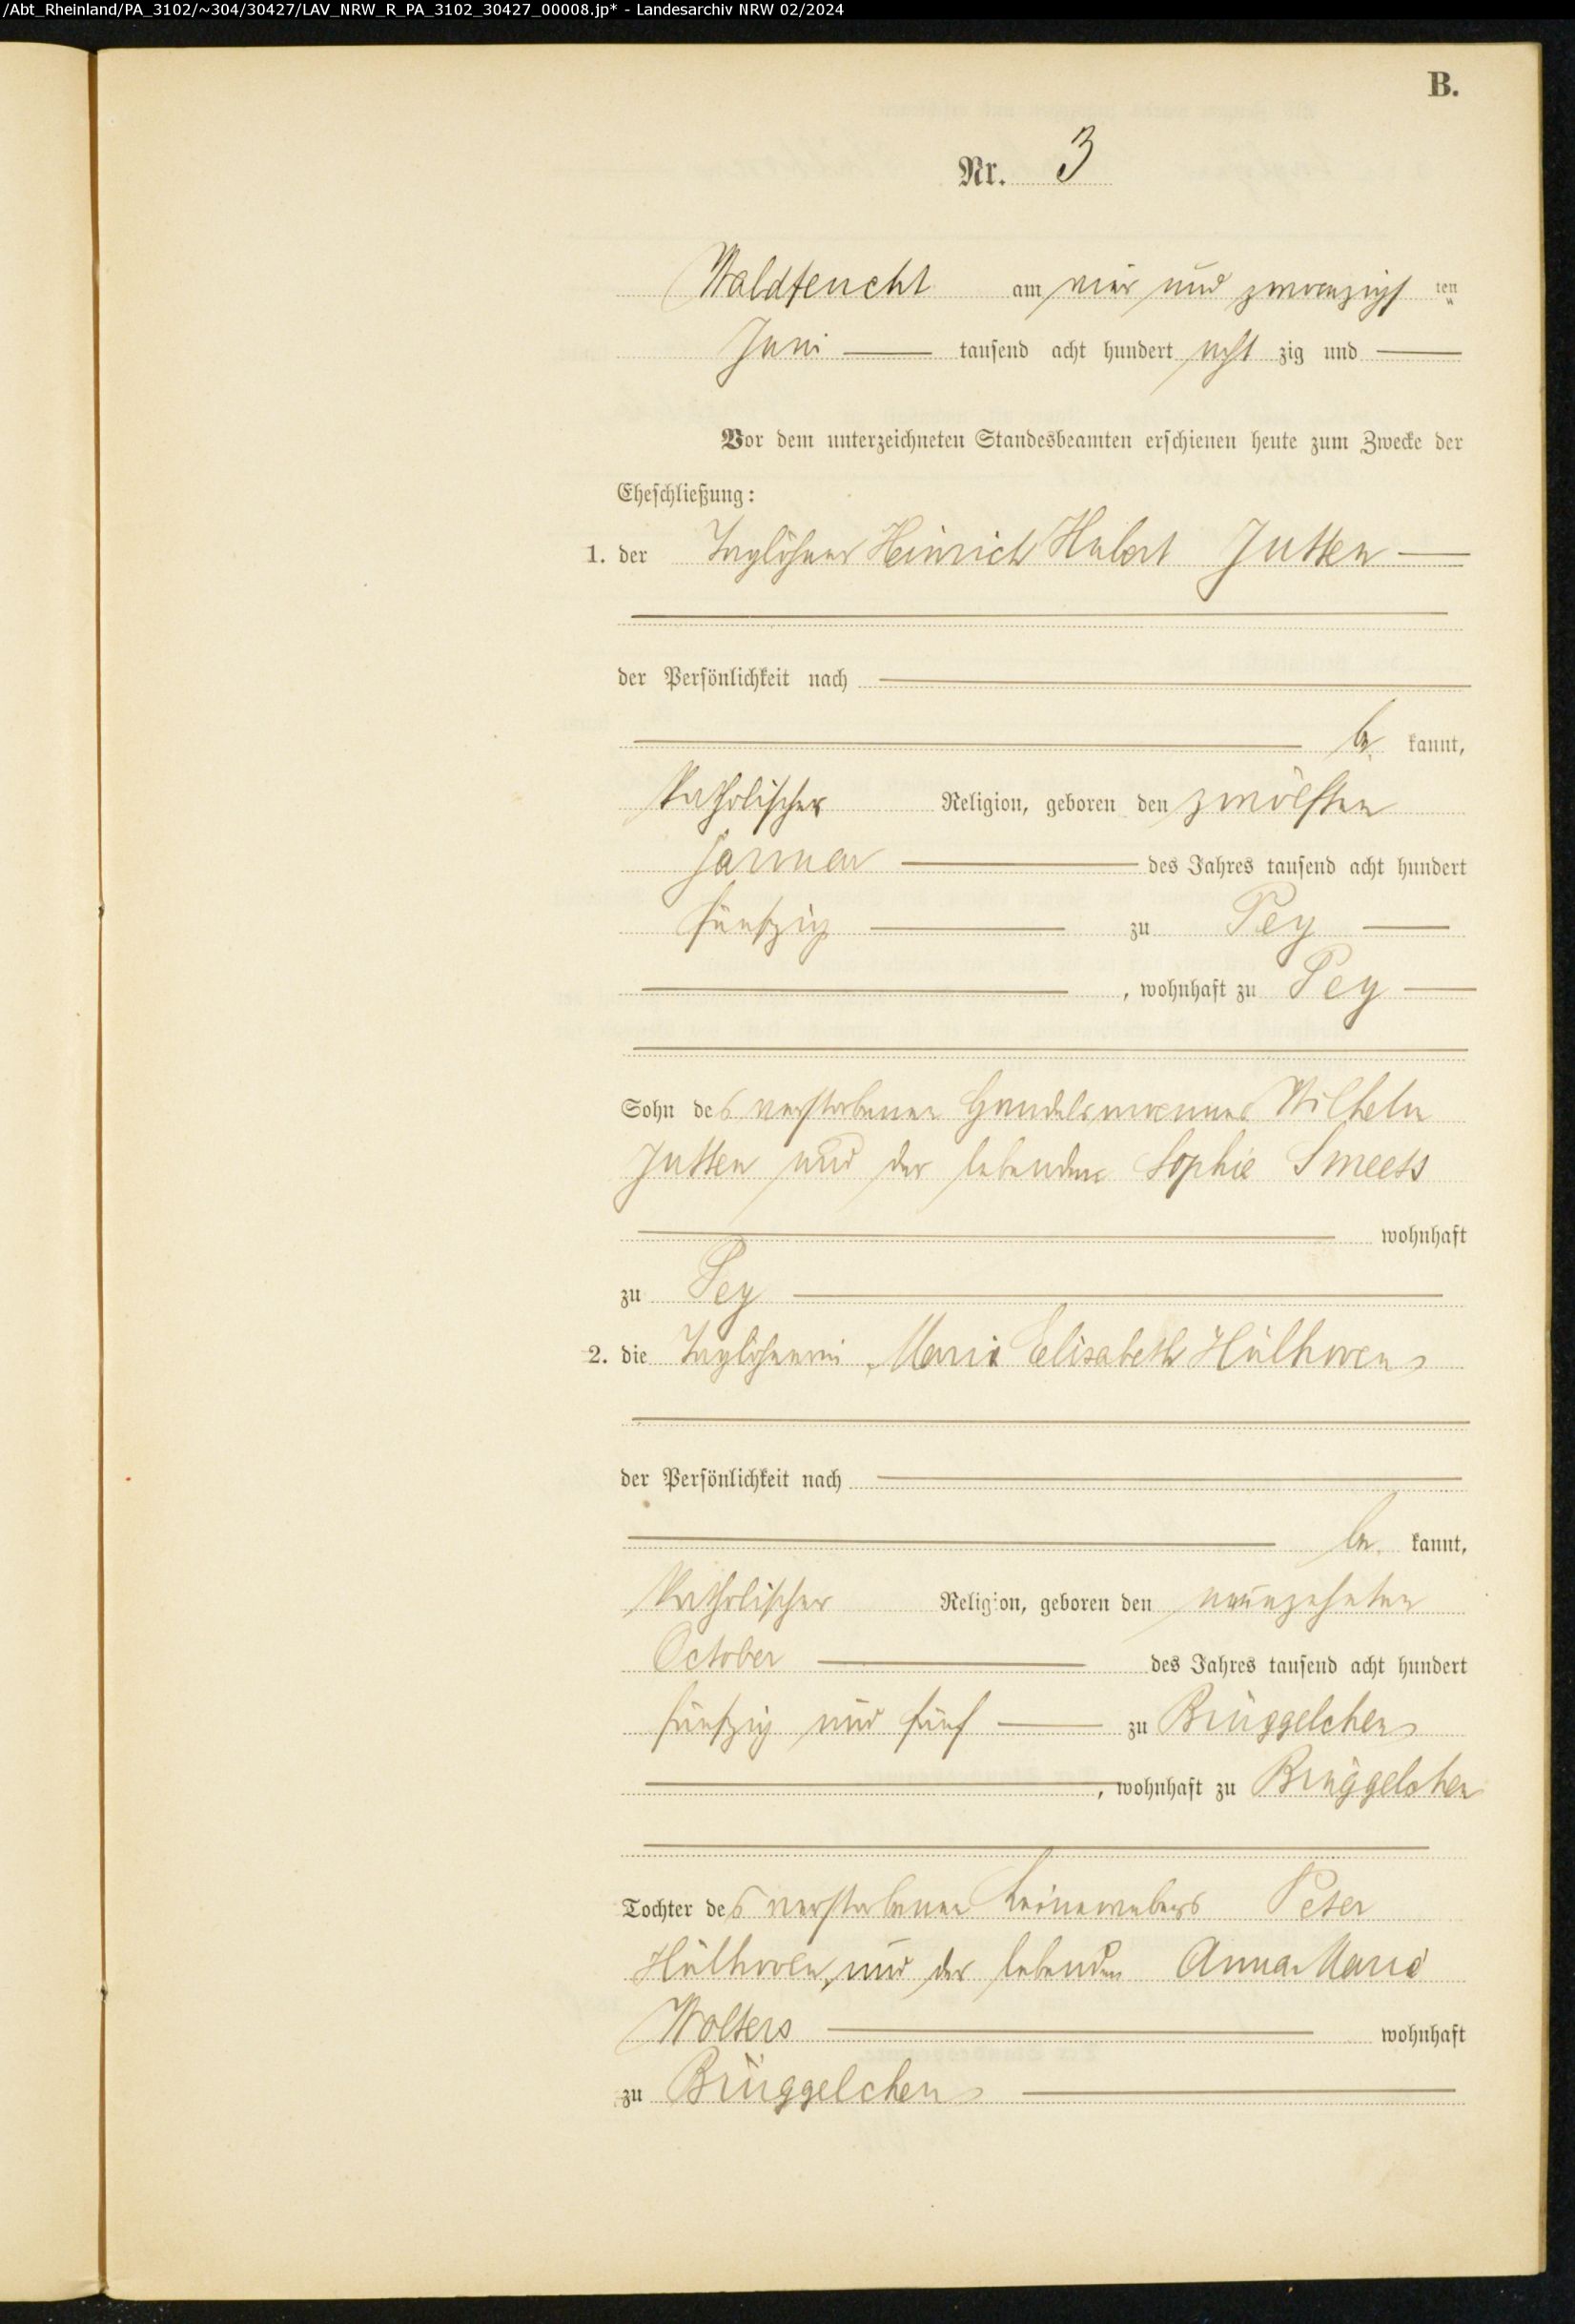 /Abt_Rheinland/PA_3102/~304/30427/LAV_NRW_R_PA_3102_30427_00008.jp* - Landesarchiv NRW 02/2024
B.
Nr. 3
Waldfeucht am vier und zwanzigs ten
Juni tausend acht hundert acht zig und
Vor dem unterzeichneten Standesbeamten erschienen heute zum Zwecke der
Eheschließung:
1. der Taglöhner Heinrich Hubert Jutten
der Persönlichkeit nach
be kannt,
katholischer Religion, geboren den zwölften
Januar des Jahres tausend acht hundert
fünfzig zu Pey
, wohnhaft zu Pey
Sohn des verstorbenen Handelsmannes Wilhelm
Jutten und der lebenden Sophie Smeets
wohnhaft
zu Pey
2. die Taglöhnerin Maria Elisabeth Hülhoven
der Persönlichkeit nach
be kannt,
katholischer Religion, geboren den neunzehnten
October des Jahres tausend acht hundert
fünfzig und fünf zu Brüggelchen
, wohnhaft zu Brüggelchen
Tochter des verstorbenen Leinewebers Peter
Hülhoven, und der lebenden Anna Maria
Wolters wohnhaft
zu Brüggelchen